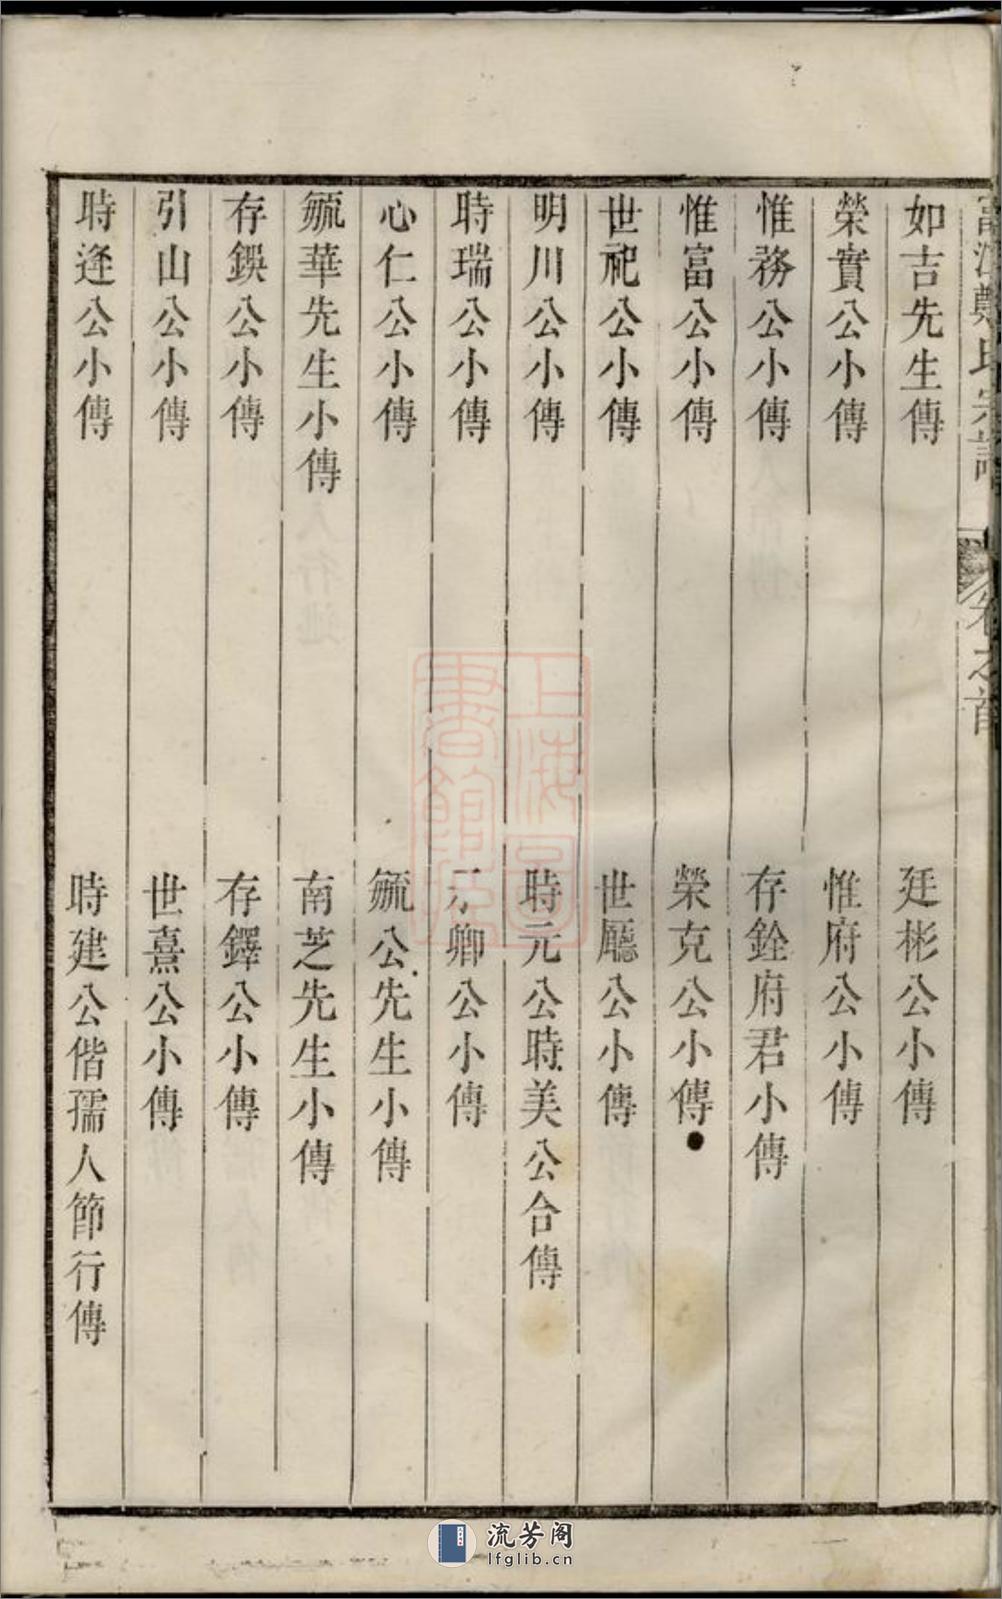 富江鄭氏宗譜 卷之首
如吉先生傳 廷彬公小傳
榮實公小傳 惟府公小傳
惟務公小傳 存銓府君小傳
惟富公小傳 榮克公小傳
世祀公小傳 世廳公小傳
明川公小傳 時元公時美公合傳
時瑞公小傳 卿公小傳
心仁公小傳 毓公先生小傳
毓華先生小傳 南芝先生小傳
存鍈公小傳 存鐸公小傳
引山公小傳 世熹公小傳
時逢公小傳 時建公偕孺人節行傳
上海圖書館藏
流芳阁
lfglib.cn